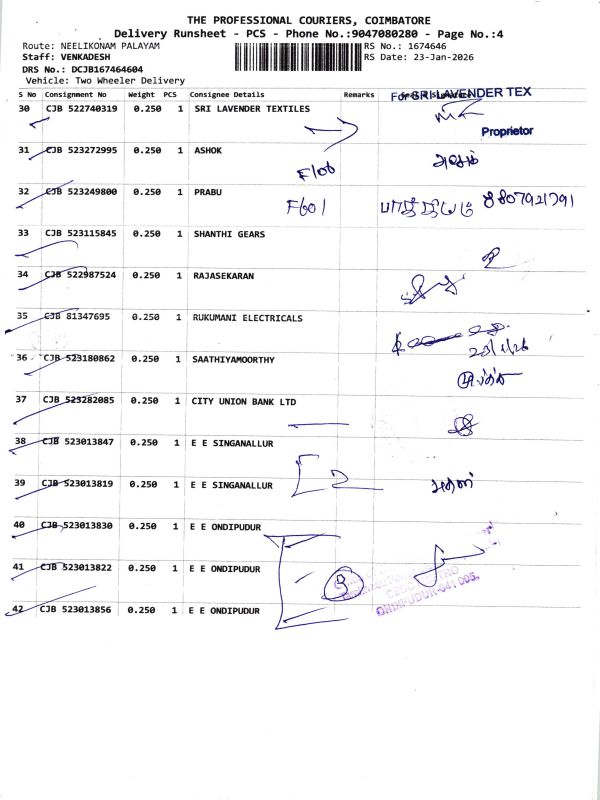 THE PROFESSIONAL COURIERS, COIMBATORE
Delivery Runsheet - PCS - Phone No.:9047080280 - Page No.:4
Route: NEELIKONAM PALAYAM
RS No.: 1674646
Staff: VENKADESH
RS Date: 23-Jan-2026
DRS No.: DCJB167464604
Vehicle: Two Wheeler Delivery
S No Consignment No Weight PCS Consignee Details Remarks
For SRI LAVENDER TEX
30 CJB 522740319 0.250 1 SRI LAVENDER TEXTILES
Proprietor
31 CJB 523272995 0.250 1 ASHOK
F106
32 CJB 523249800 0.250 1 PRABU
F601 8807921791
33 CJB 523115845 0.250 1 SHANTHI GEARS
34 CJB 522987524 0.250 1 RAJASEKARAN
35 CJB 81347695 0.250 1 RUKUMANI ELECTRICALS
23/1/26
36 CJB 523180862 0.250 1 SAATHIYAMOORTHY
37 CJB 523282085 0.250 1 CITY UNION BANK LTD
38 CJB 523013847 0.250 1 E E SINGANALLUR
2
39 CJB 523013819 0.250 1 E E SINGANALLUR
40 CJB 523013830 0.250 1 E E ONDIPUDUR
41 CJB 523013822 0.250 1 E E ONDIPUDUR
3
ONDIPUDUR-641 005.
42 CJB 523013856 0.250 1 E E ONDIPUDUR